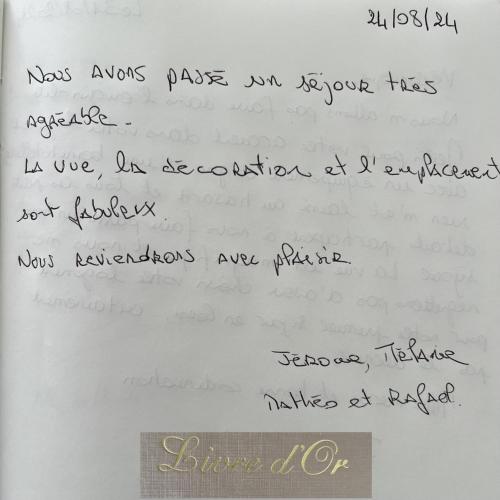 24/08/24
Nous avons passé un séjour très
agréable.
La vue, la décoration et l'emplacement
sont fabuleux.
Nous reviendrons avec plaisir
Jérome, Mélanie
Mathéo et Rafael.
Livre d'Or